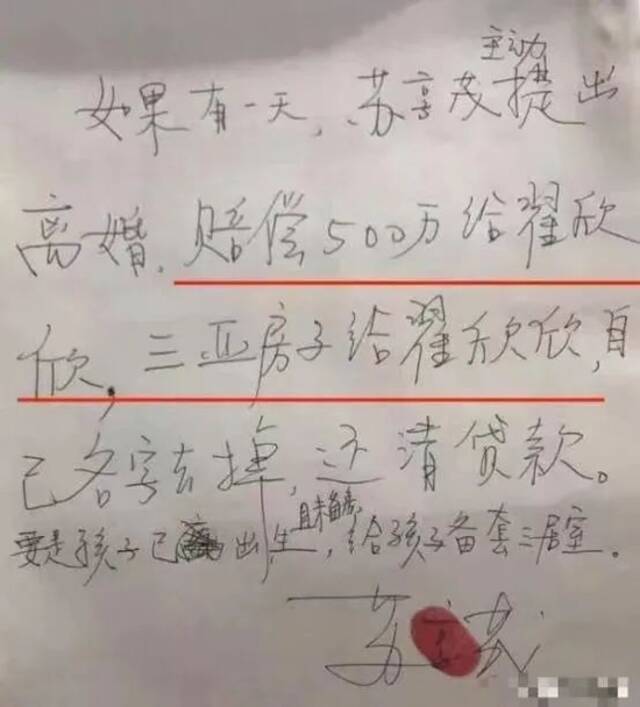 主动
如果有一天,苏享茂提出
离婚.赔偿500万给翟欣
欣,三亚房子给翟欣欣,自
己名字去掉,还清贷款。
且未離婚
要是孩子已出生,给孩子备套三居室。
苏享茂